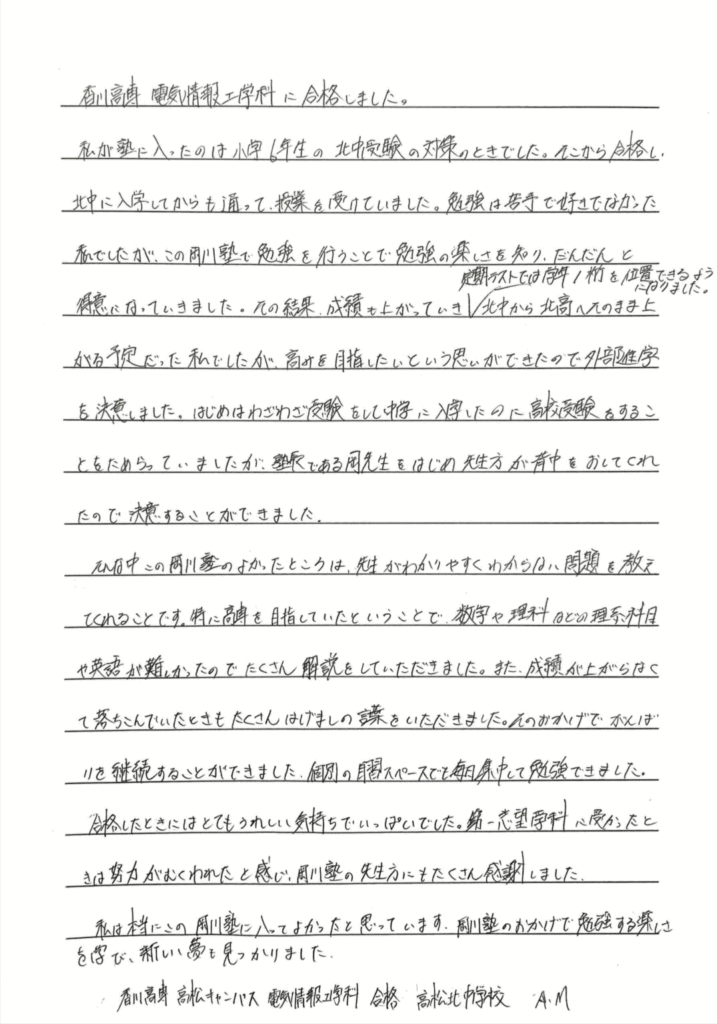 香川高専 電気情報工学科 に 合格しました。
私が塾に入ったのは小学6年生の 北中受験の対策のときでした。そこから合格し、
北中に入学してからも通って、授業を受けていました。勉強は苦手で好きでなかった
私でしたが、この岡川塾で勉強を行うことで勉強の楽しさを知り、だんだん と
定期テストでは学年1桁を位置できるよう
になりました。
得意になっていきました。その結果、成績も上がっていき 北中から北高へそのまま上
がる予定だった私でしたが、高みを目指したいという思いができたので外部進学
を決意しました。はじめはわざわざ受験をして中学に入学したのに高校受験をするこ
とをためらっていましたが、塾長である岡先生をはじめ先生方が背中をおしてくれ
たので決意することができました。
そんな中この岡川塾のよかったところは、先生がわかりやすくわからない問題を教え
てくれることです。特に高専を目指していたということで、数学や理科などの理系科目
や英語が難しかったのでたくさん解説をしていただきました。また、成績が上がらなく
て落ちこんでいたときもたくさんはげましの言葉をいただきました。そのおかげでがんば
りを継続することができました。個別の自習スペースでも毎日集中して勉強できました。
合格したときにはとてもうれしい気持ちでいっぱいでした。第一志望学科に受かったと
きは努力がむくわれたと感じ、岡川塾の先生方にもたくさん感謝しました。
私は本当にこの岡川塾に入ってよかったと思っています。岡川塾のおかげで勉強する楽しさ
を学び、新しい夢も見つかりました。
香川高専 高松キャンパス 電気情報工学科 合格 高松北中学校 A.M